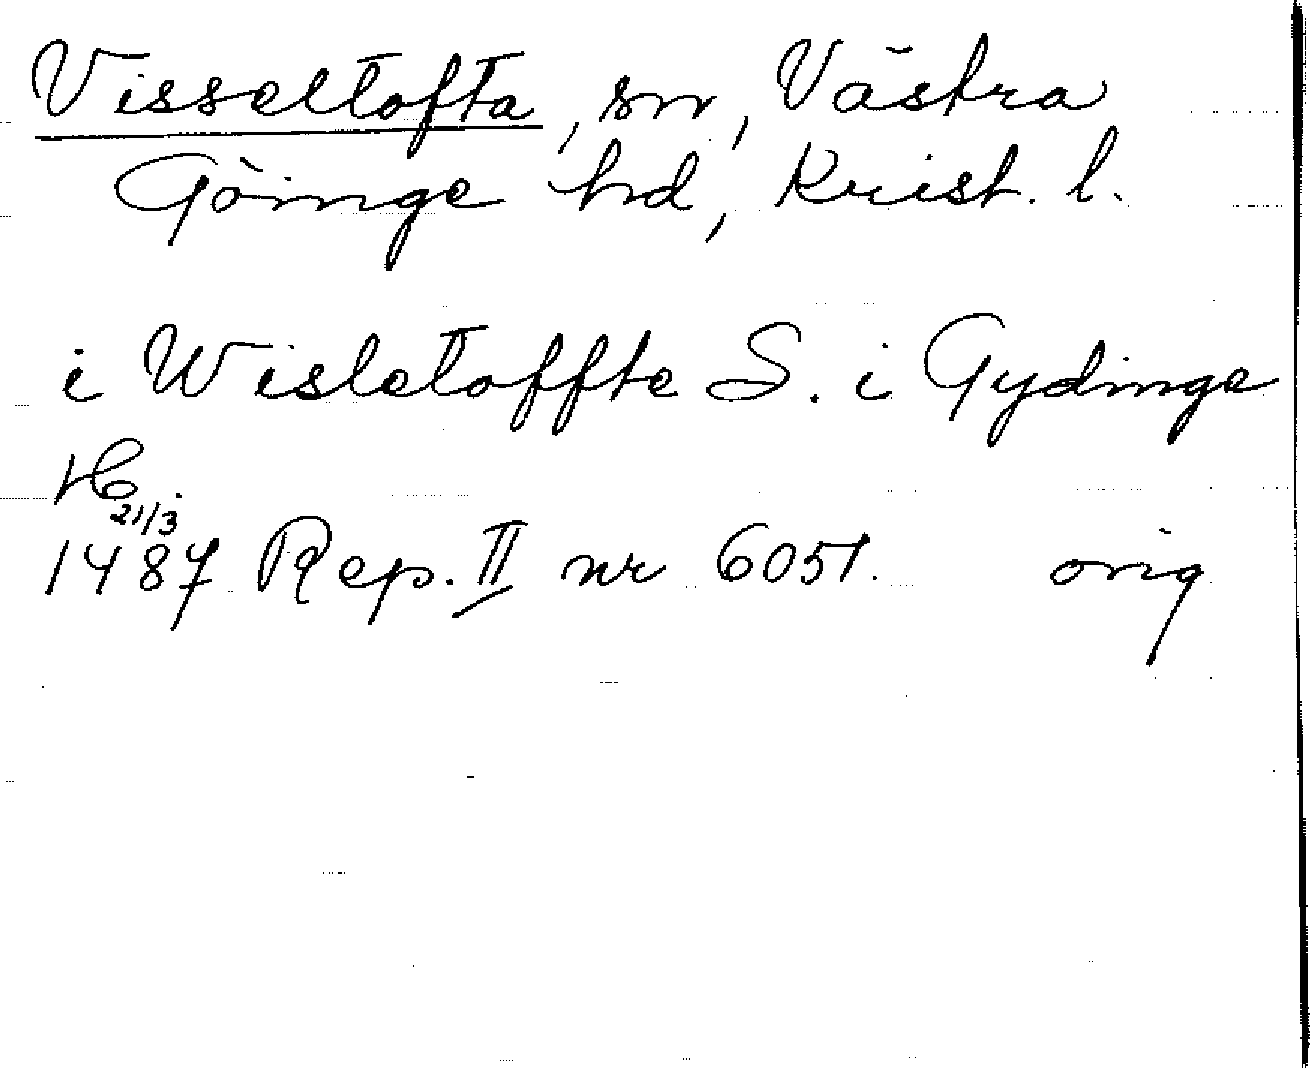 Visseltofta, sn, Västra
Göinge hd, Krist. l.
i Wisletoffte S. i Gydinge
H
21/3
1487 Rep. II nr 6051. orig